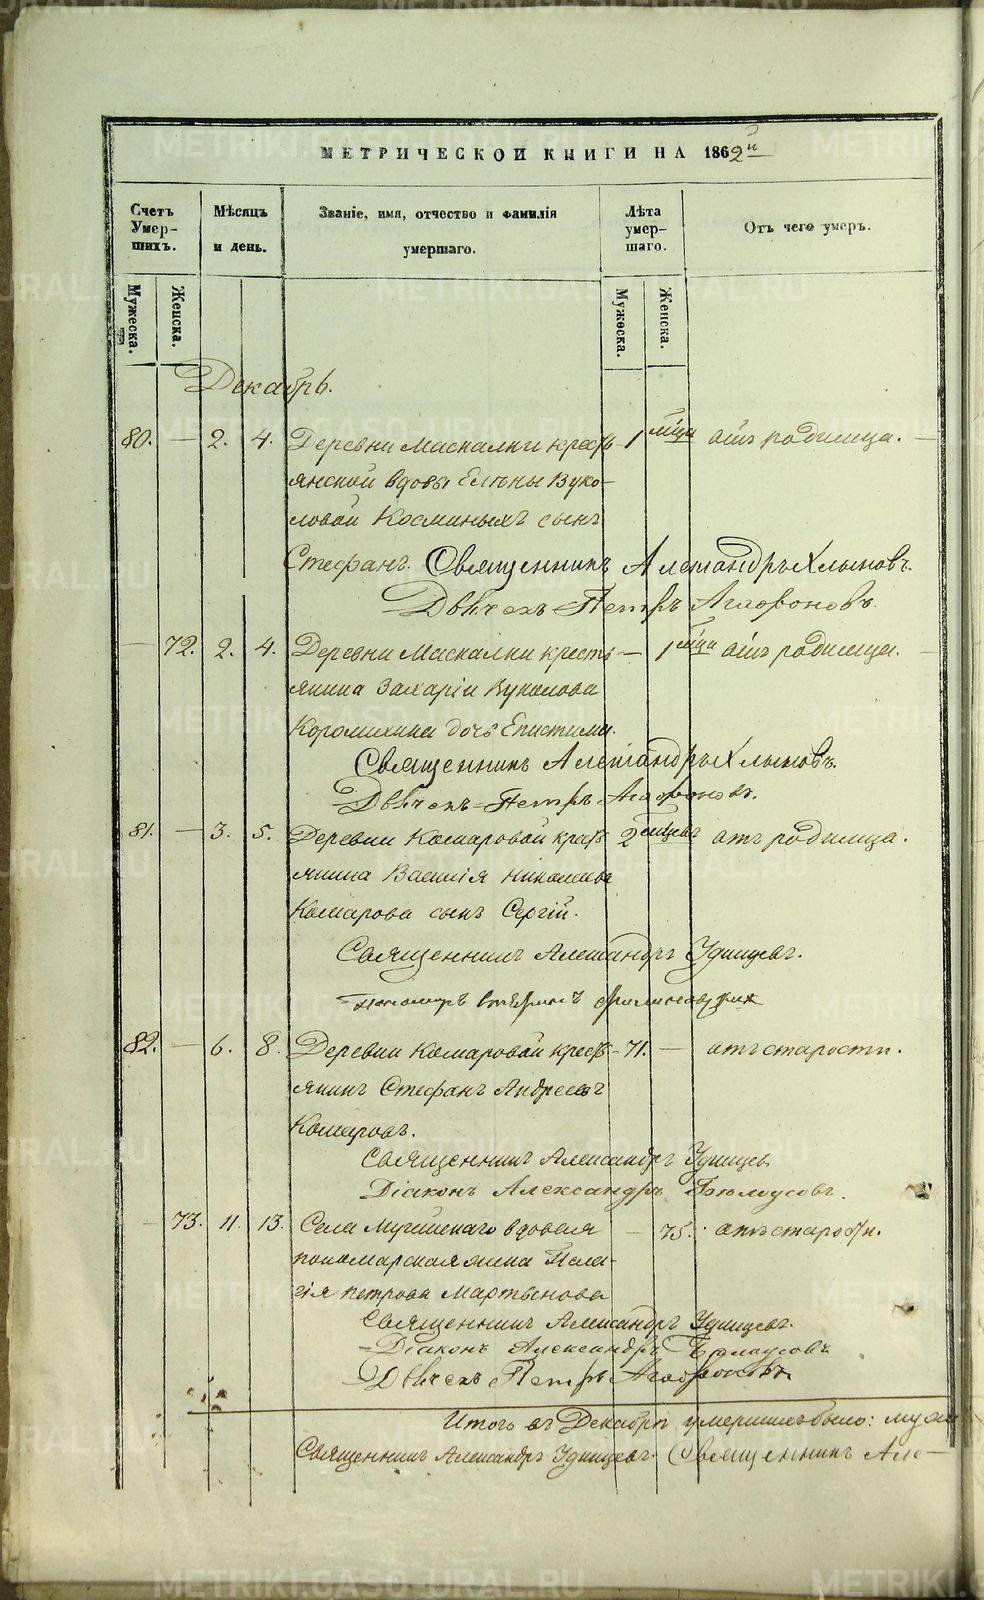 МЕТРИЧЕСКОЙ КНИГИ НА 1862й
Счетъ Умер-шихъ.
Мѣсяцъ и день.
Званіе, имя, отчество и фамилія умершаго.
Лѣта умер-шаго.
Отъ чего умеръ.
Мужеска.
Женска.
Мужеска.
Женска.
Декабрь.
80. — 2. 4. Деревни Маскалки кресть- 1 м̃ца отъ родимца.
янской вдовы Елены Вуко-
ловой Косминыхъ сынъ
Стефанъ. Священникъ Александръ Хлыновъ.
Дьячекъ Петръ Агафоновъ.
— 72. 2. 4. Деревни Маскалки кресть — 1 м̃ца отъ родимца.
янина Захаріи Вуколова
дочь Епистимія.
Священникъ Александръ Хлыновъ.
Дьячекъ Петръ Агафоновъ.
81. — 3. 5. Деревни Комаровой крест 2 отъ родимца.
янина Василія Николаева
Комарова сынъ Сергій.
Священникъ Александръ Удинцевъ.
Пономарь
82. — 6. 8. Деревни Комаровой крест- 71. — отъ старости.
янинъ Стефанъ Андреевъ
Комаровъ.
Священникъ Александръ Удинцевъ
Діаконъ Александръ Бѣлоусовъ.
— 73. 11. 13. Села вдовая — 75. отъ старости.
пономарская жена Пела-
гія Петрова Мартынова
Священникъ Александръ Удинцевъ.
Діаконъ Александръ Бѣлоусовъ
Дьячекъ Петръ Агафоновъ.
Итого въ Декабрѣ умершихъ было: муж
Священникъ Александръ Удинцевъ. Священникъ Але-
METRIKI.GASO-URAL.RU